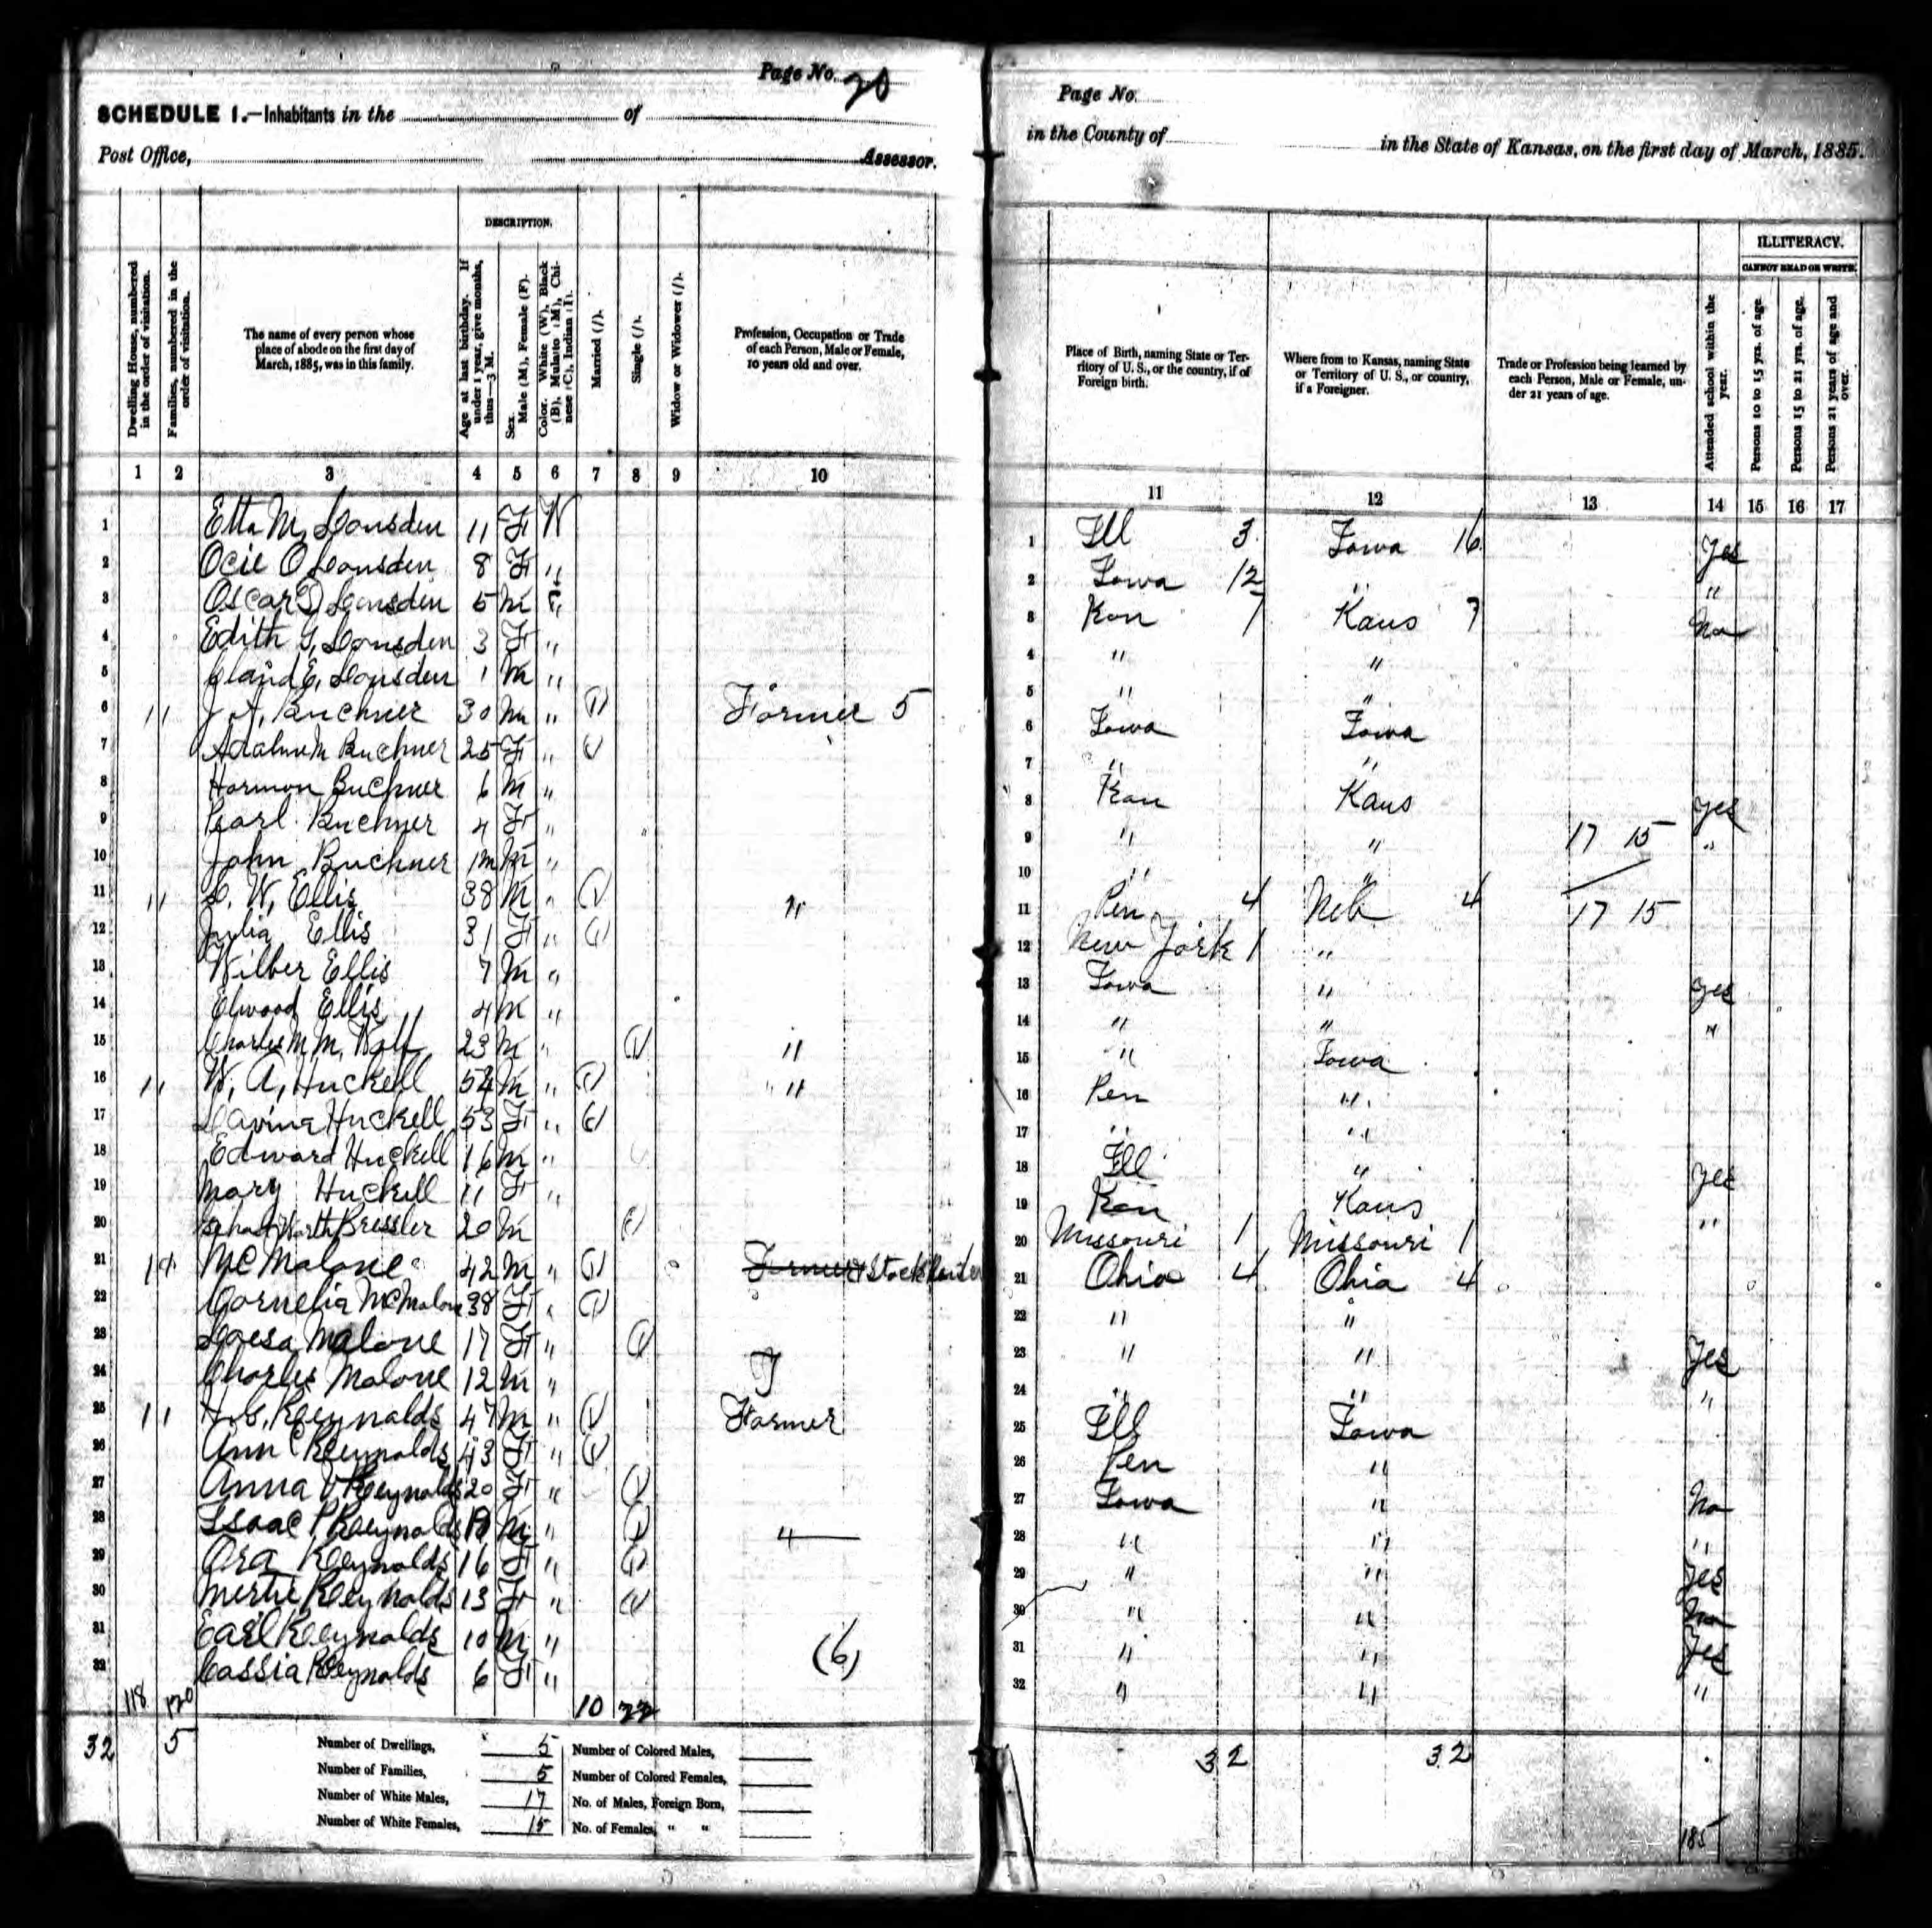 Page No. 20
SCHEDULE 1.—Inhabitants in the of
Post Office, Assessor.
Page No.
in the County of in the State of Kansas, on the first day of March, 1885.
DESCRIPTION.
Dwelling House, numbered in the order of visitation.
Families, numbered in the order of visitation.
The name of every person whose place of abode on the first day of March, 1885, was in this family.
Age at last birthday. If under 1 year, give months, thus—3 M.
Sex. Male (M), Female (F).
Color. White (W), Black (B), Mulatto (M), Chinese (C), Indian (I).
Married (/).
Single (/).
Widow or Widower (/).
Profession, Occupation or Trade of each Person, Male or Female, 10 years old and over.
Place of Birth, naming State or Territory of U. S., or the country, if of Foreign birth.
Where from to Kansas, naming State or Territory of U. S., or country, if a Foreigner.
Trade or Profession being learned by each Person, Male or Female, under 21 years of age.
Attended school within the year.
ILLITERACY.
CANNOT READ OR WRITE.
Persons 10 to 15 yrs. of age.
Persons 15 to 21 yrs. of age.
Persons 21 years of age and over.
1 2 3 4 5 6 7 8 9 10 11 12 13 14 15 16 17
1 Etta M, Lonsden 11 F W Ill 3 Iowa 16 Yes
2 Ocie O Lonsden 8 F " Iowa 12 " "
3 Oscar D Lonsden 5 M " Kan 7 Kans 7 No
4 Edith G, Lonsden 3 F " " "
5 E, Lonsden 1 M " " "
6 11 Buchner 30 M " 1 Farmer 5 Iowa Iowa
7 M Buchner 25 F " 1 " "
8 Harmon Buchner 6 M " Kan Kans Yes
9 Pearl Buchner 4 F " " " 17 15 "
10 John Buchner 1m M " " "
11 11 W, Ellis 38 M " 1 " Pen 4 Neb 4 17 15
12 Julia Ellis 31 F " 1 New York 1 "
13 Wilber Ellis 7 M " Iowa " Yes
14 Elwood Ellis 4 M " " " "
15 Charles M, M, Wolf 23 M " 1 " " Iowa
16 11 W, A, Huckell 54 M " 1 " Pen "
17 Lavina Huckell 53 F " 1 " "
18 Edward Huckell 16 M " Ill " Yes
19 Mary Huckell 11 F " Kan Kans "
20 Bressler 20 M 1 Missouri 1 Missouri 1
21 11 Mc Malone 42 M " 1 Farmer & Stock Ohio 4 Ohio 4
22 Cornelia McMalone 38 F " 1 " "
23 Malone 17 F " 1 " " Yes
24 Charles Malone 12 M " " " "
25 11 Reynolds 47 M " 1 Farmer Ill Iowa
26 Ann C Reynolds 43 F " 1 Pen "
27 Anna V Reynolds 20 F " 1 Iowa " No
28 Isaac P, Reynolds M " 1 " " " "
29 Ora Reynolds 16 F " 1 " " Yes
30 Mertie Reynolds 13 F " 1 " " No
31 Earl Reynolds 10 M " (6) " " Yes
32 Cassia Reynolds 6 F " " " "
118 120 10 22
32 5
Number of Dwellings, 5 Number of Colored Males,
Number of Families, 5 Number of Colored Females,
Number of White Males, 17 No. of Males, Foreign Born,
Number of White Females, 15 No. of Females, " "
32 32
185